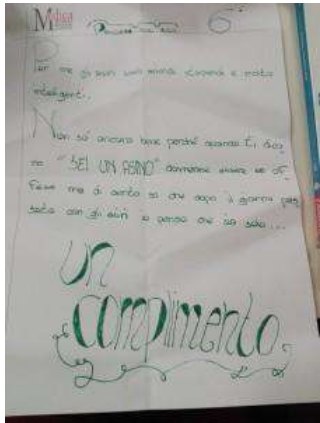 Per me gli asini sono animali stupendi e molto
intelligenti.
Non so ancora bene perché quando ti dico
no "SEI UN ASINO" dovrebbe essere un of
fesa ma di certo so che dopo giorni
sola con gli asini io penso che sia solo...
un
complimento